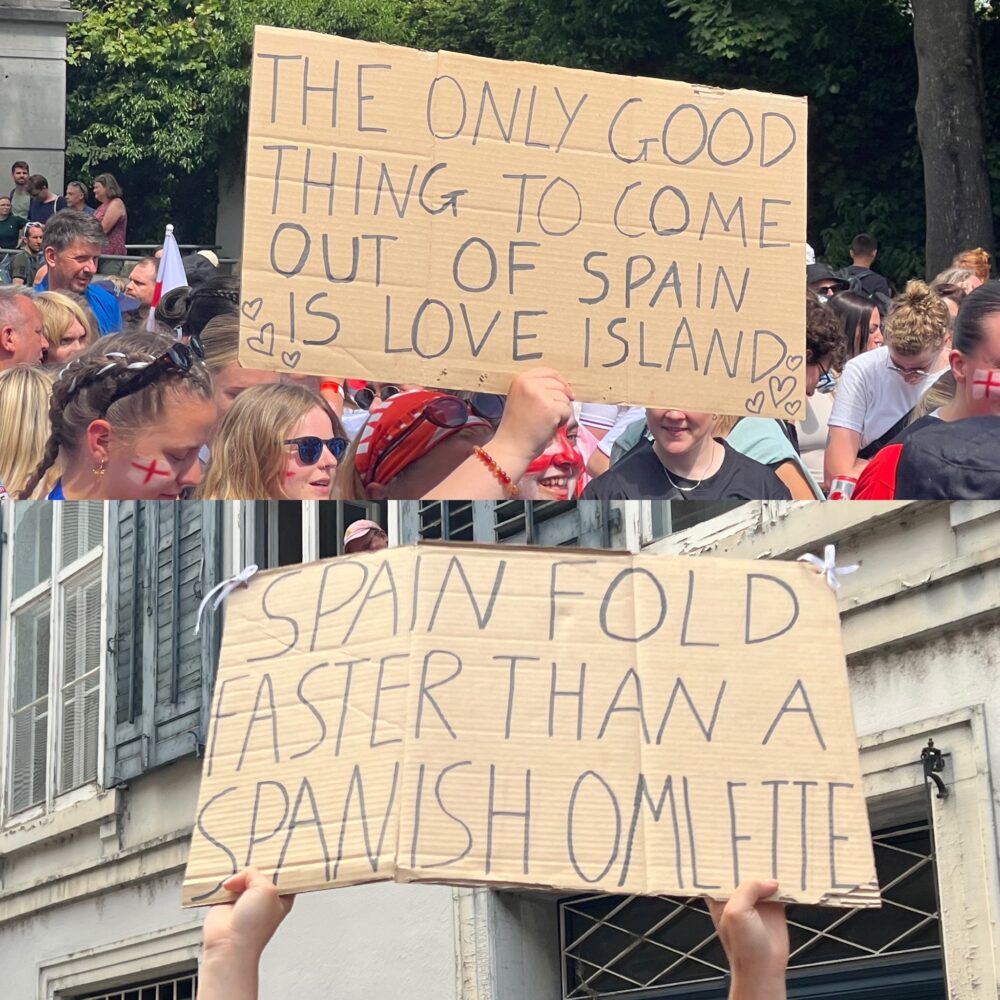 THE ONLY GOOD
THING TO COME
OUT OF SPAIN
IS LOVE ISLAND
SPAIN FOLD
FASTER THAN A
SPANISH OMLETTE